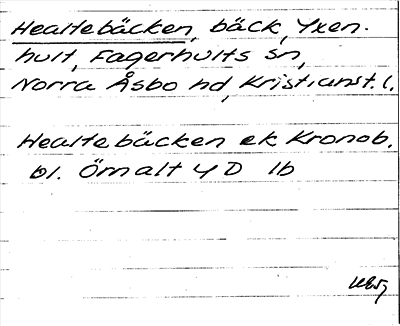 Healtebäcken, bäck, Yxen-
hult, Fagerhults sn,
Norra Åsbo hd, Kristianst. l.
Healtebäcken ek Kronob.
bl. Örnalt 4 D 1b